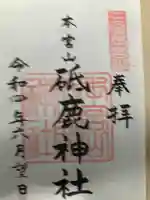 奉拝
本宮山
砥鹿神社
令和四年六月望日